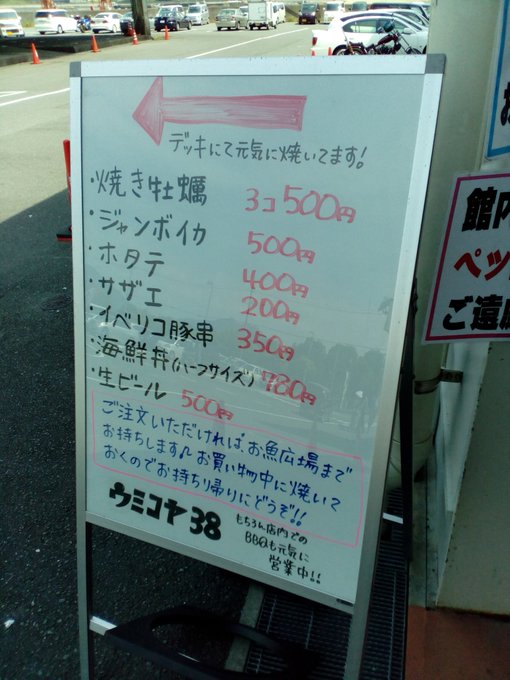 デッキにて元気に焼いてます!
・焼き牡蠣 3コ500円
・ジャンボイカ 500円
・ホタテ 400円
・サザエ 200円
・イベリコ豚串 350円
・海鮮丼(ハーフサイズ) 780円
・生ビール 500円
ご注文いただければ、お魚広場まで
お持ちします♪お買い物中に焼いて
おくのでお持ち帰りにどうぞ!!
ウミコヤ38
もちろん店内での
BBQも元気に
営業中!!
館内
ペッ
ご遠